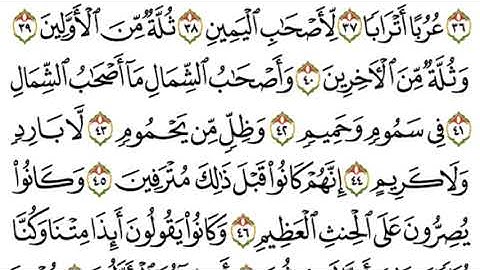 ٣٦ عُرُبًا أَتْرَابًا ٣٧ لِّأَصْحَٰبِ ٱلْيَمِينِ ٣٨ ثُلَّةٌ مِّنَ ٱلْأَوَّلِينَ ٣٩
وَثُلَّةٌ مِّنَ ٱلْأَخِرِينَ ٤٠ وَأَصْحَٰبُ ٱلشِّمَالِ مَآ أَصْحَٰبُ ٱلشِّمَالِ
٤١ فِى سَمُومٍ وَحَمِيمٍ ٤٢ وَظِلٍّ مِّن يَحْمُومٍ ٤٣ لَّا بَارِدٍ
وَلَا كَرِيمٍ ٤٤ إِنَّهُمْ كَانُوا۟ قَبْلَ ذَٰلِكَ مُتْرَفِينَ ٤٥ وَكَانُوا۟
يُصِرُّونَ عَلَى ٱلْحِنثِ ٱلْعَظِيمِ ٤٦ وَكَانُوا۟ يَقُولُونَ أَئِذَا مِتْنَا وَكُنَّا